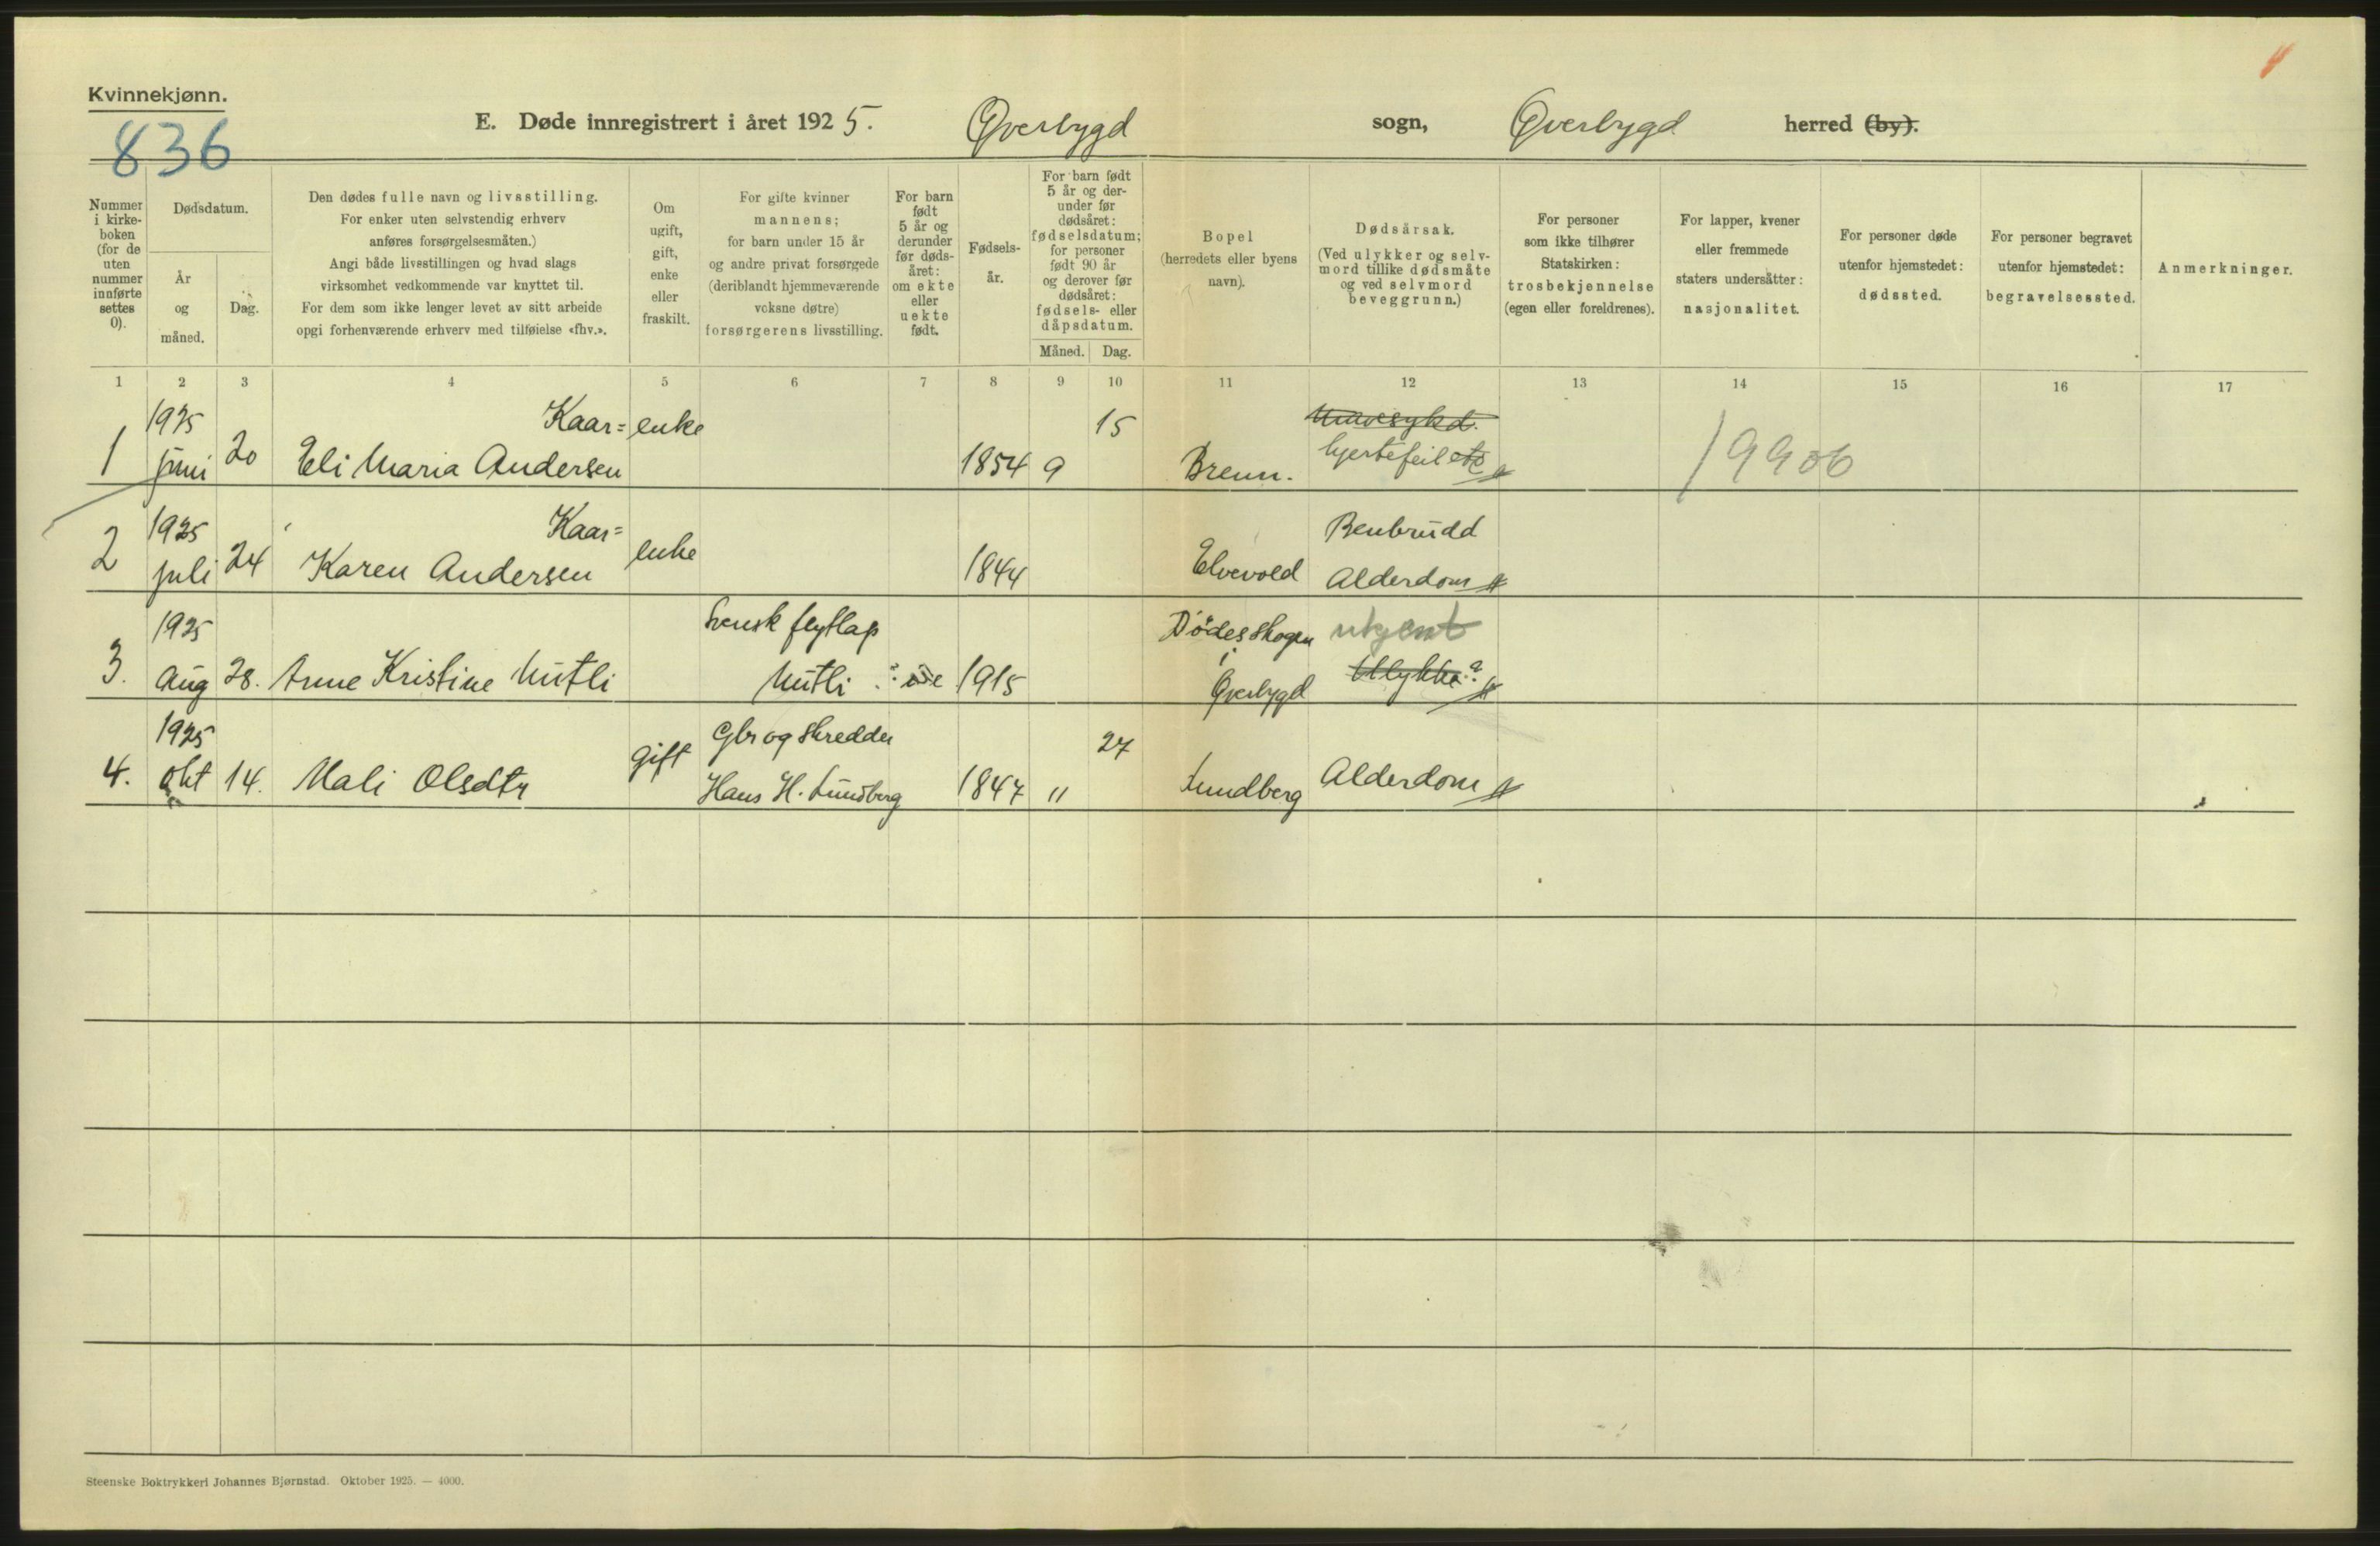 Kvinnekjønn.
836
E. Døde innregistrert i året 1925. Øverbygd sogn, Øverbygd herred (by).
Nummer i kirke-
boken
(for de
uten
nummer
innførte
settes
0).
Dødsdatum.
År
og
måned.
Dag.
Den dødes fulle navn og livsstilling.
For enker uten selvstendig erhverv
anføres forsørgelsesmåten.)
Angi både livsstillingen og hvad slags
virksomhet vedkommende var knyttet til.
For dem som ikke lenger levet av sitt arbeide
opgi forhenværende erhverv med tilføielse «fhv.».
Om
ugift,
gift,
enke
eller
fraskilt.
For gifte kvinner
mannens;
for barn under 15 år
og andre privat forsørgede
(deriblandt hjemmeværende
voksne døtre)
forsørgerens livsstilling.
For barn
født
5 år og
derunder
før døds-
året:
om ekte
eller
uekte
født.
Fødsels-
år.
For barn født
5 år og der-
under før
dødsåret:
fødselsdatum;
for personer
født 90 år
og derover før
dødsåret:
fødsels- eller
dåpsdatum.
Måned. Dag.
Bopel
(herredets eller byens
navn).
Dødsårsak.
(Ved ulykker og selv-
mord tillike dødsmåte
og ved selvmord
beveggrunn.)
For personer
som ikke tilhører
Statskirken:
trosbekjennelse
(egen eller foreldrenes).
For lapper, kvener
eller fremmede
staters undersåtter:
nasjonalitet.
For personer døde
utenfor hjemstedet:
dødssted.
For personer begravet
utenfor hjemstedet:
begravelsessted.
Anmerkninger.
1 2 3 4 5 6 7 8 9 10 11 12 13 14 15 16 17
1925 Kaar= enke 15
1 juni 20 Eli Maria Andersen 1854 9 Brenn. hjertefeil etc 19906
1925 Kaar= enke Benbrudd
2 juli 24 Karen Andersen 1844 Elvevold Alderdom
1925 Svensk flytlap Dødesskogen ukjent
i
3. Aug 28. Anne Kristine Nutli Nutli 1915 Øverbygd Ulykke?
1925 gift Gbr og skredder 27
4. okt 14. Mali Olsdtr Hans H. Lundberg 1847 11 Lundberg Alderdom
Steenske Boktrykkeri Johannes Bjørnstad. Oktober 1925. — 4000.